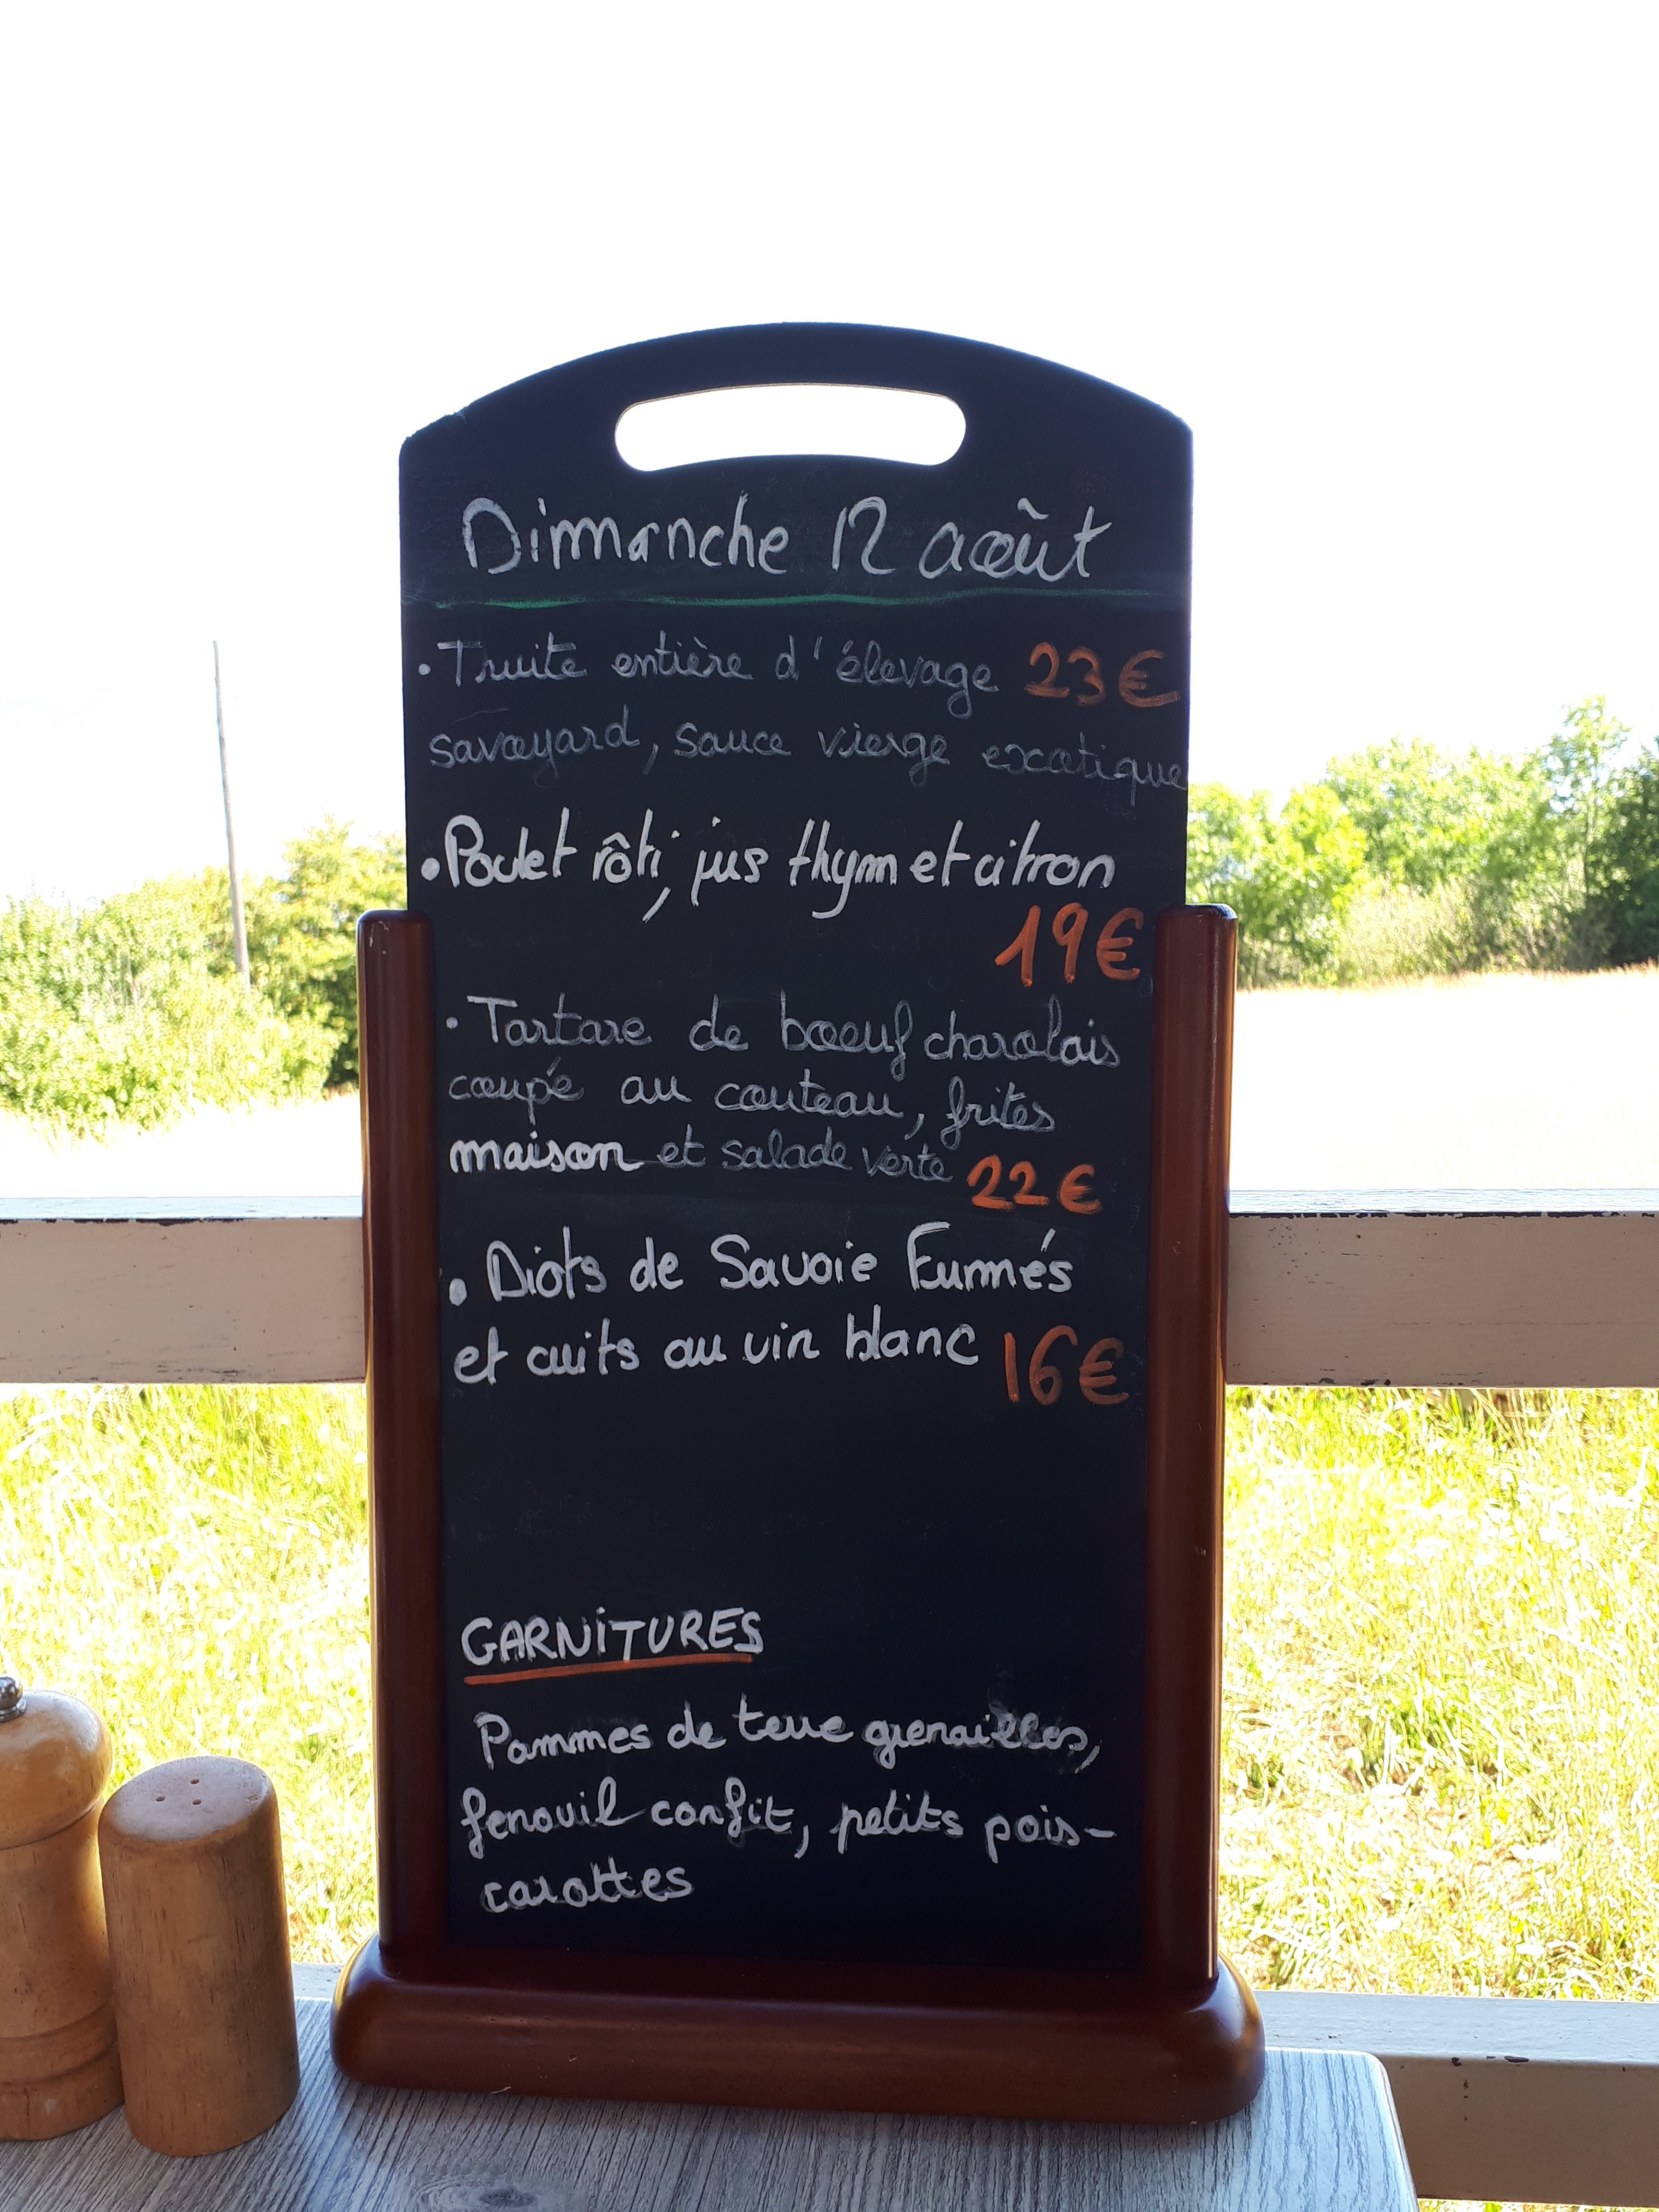 Dimanche 12 août
• Truite entière d'élevage 23€
savoyard, sauce vierge exotique
• Poulet rôti, jus thym et citron
19€
• Tartare de boeuf charolais
coupé au couteau, frites
maison et salade verte 22€
• Diots de Savoie Fumés
et cuits au vin blanc 16€
GARNITURES
Pommes de terre grenailles,
fenouil confit, petits pois-
carottes